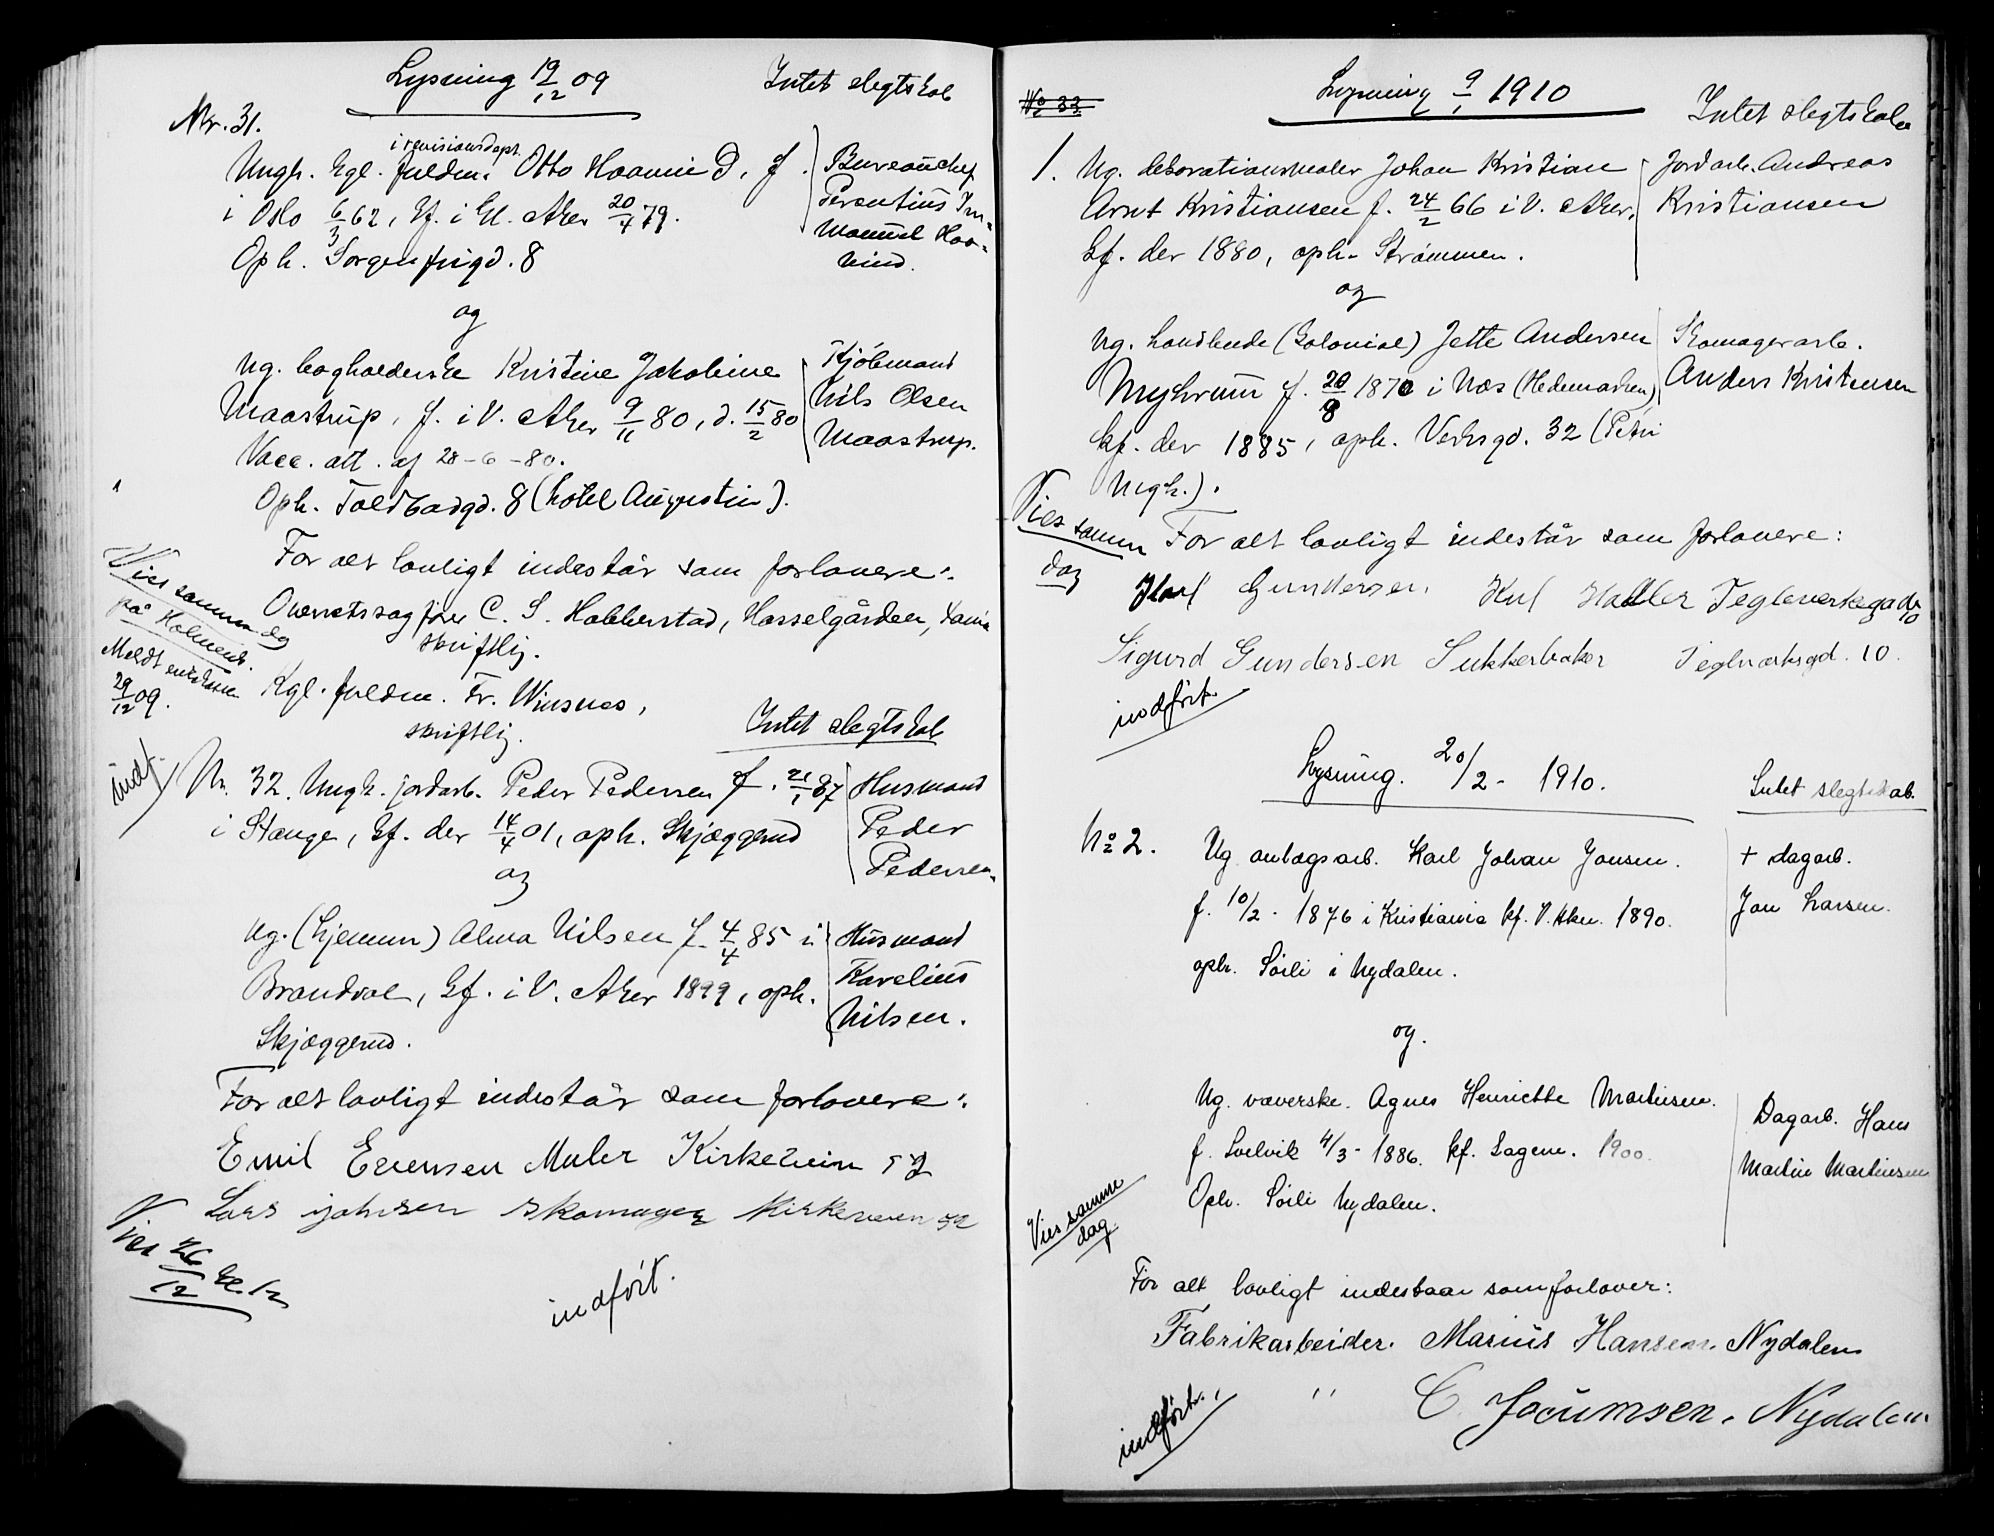 Lysning 19/12 09
Intet slegtskab
Nr. 31.
i revisionsdept.
Ungk. kgl. fuldm. Otto Haavind, f.
i Oslo 6/3 62, kf. i Gl. Aker 20/4 79.
Oph. Sorgenfrigd. 8
Bureauchef
Im-
manuel Haa-
vind.
og
Ug. bogholderske Kristine Jakobine
Maastrup, f. i V. Aker 9/11 80, d. 15/2 80
Vacc. att. af 28-6-80.
Oph. Toldbodgd. 8 (hotel Augustin).
Kjöbmand
Nils Olsen
Maastrup.
For alt lovligt indestår som forlovere:
Overretssagfører C. S. Habberstad, Hasselgården,
skriftlig.
Kgl. fuldm. Fr. Winsnes,
skriftlig.
Vies samme dag
på Holmenk.
Meldt
29/12 09.
indf.
Intet slegtskab
Nr. 32. Ungk. jordarb. Peder Pedersen f. 21/1 87
i Stange, kf. der 14/4 01, oph. Skjæggerud
Husmand
Peder
Pedersen.
og
Ug. (hjemme) Alma Nilsen f. 4/4 85 i
Brandval, kf. i V. Aker 1899, oph.
Skjæggerud.
Husmand
Karelius
Nilsen.
For alt lovligt indestår som forlovere:
Emil Evensen Maler Kirkeveien 52
Lars Johnsen Skomager Kirkeveien 52
Vies 26/12 kl. 12
indført.
No 33
Lysning 9/1 1910
Intet slegtskab
1. Ug. dekorationsmaler Johan Kristian
Arnt Kristiansen f. 24/2 66 i V. Aker,
kf. der 1880, oph. Strømmen.
Jordarb. Andreas
Kristiansen
og
Ug. handlende (kolonial) Jette Andersen
Myhrum f. 20/8 1870 i Næs (Hedemarken)
kf. der 1885, oph. Verksgd. 32 (Petri
Mgh.).
Skomagerarb.
Anders Kristensen
Vies samme
dag
For alt lovligt indestår som forlovere:
Gundersen, Teglverksgade 10
Sigurd Gundersen Sukkerbaker Teglværksgd. 10.
indført.
Lysning. 20/2 - 1910.
Intet slegtskab.
No 2.
Ug anlægsarb. Karl Johan Jonsen.
f. 10/2 - 1876 i Kristiania kf. V. Aker. 1890.
oph. Sörli i Nydalen.
+ dagarb.
Jon Larsen.
og.
Ug. væverske. Agnes Henriette Martinsen.
f. Svelvik 4/3 - 1886. kf. Sagene. 1900.
Oph. Sörli Nydalen.
Dagarb. Hans
Martin Martinsen
Vies samme
dag.
For alt lovligt indestaar som forlover:
Fabrikarbeider. Marius Hansen. Nydalen
" C. Jocumsen. Nydalen
indført.